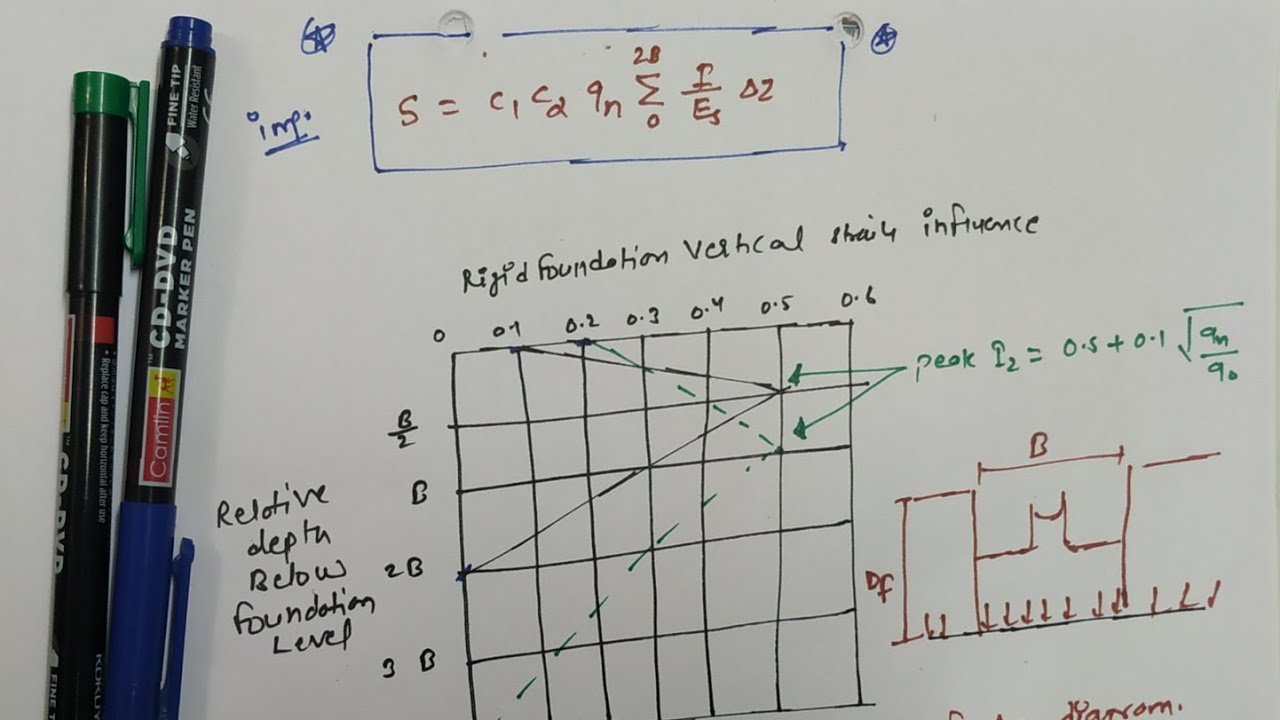 imp:
S = C₁ C₂ qₙ ∑ I/Eₛ ΔZ
2B
0
Rigid foundation Vertical strain influence
0 0.1 0.2 0.3 0.4 0.5 0.6
peak I₂ = 0.5 + 0.1 √(qₙ/q₀)
B/2
B
2B
3B
Relative
depth
Below
foundation
Level
B
Df
diagram.
FINE-TIP
Water Resistant
CD-DVD
MARKER PEN
Camlin
Replace cap and keep horizontal after use
CD-DVD
FINE TIP
KOKUYO